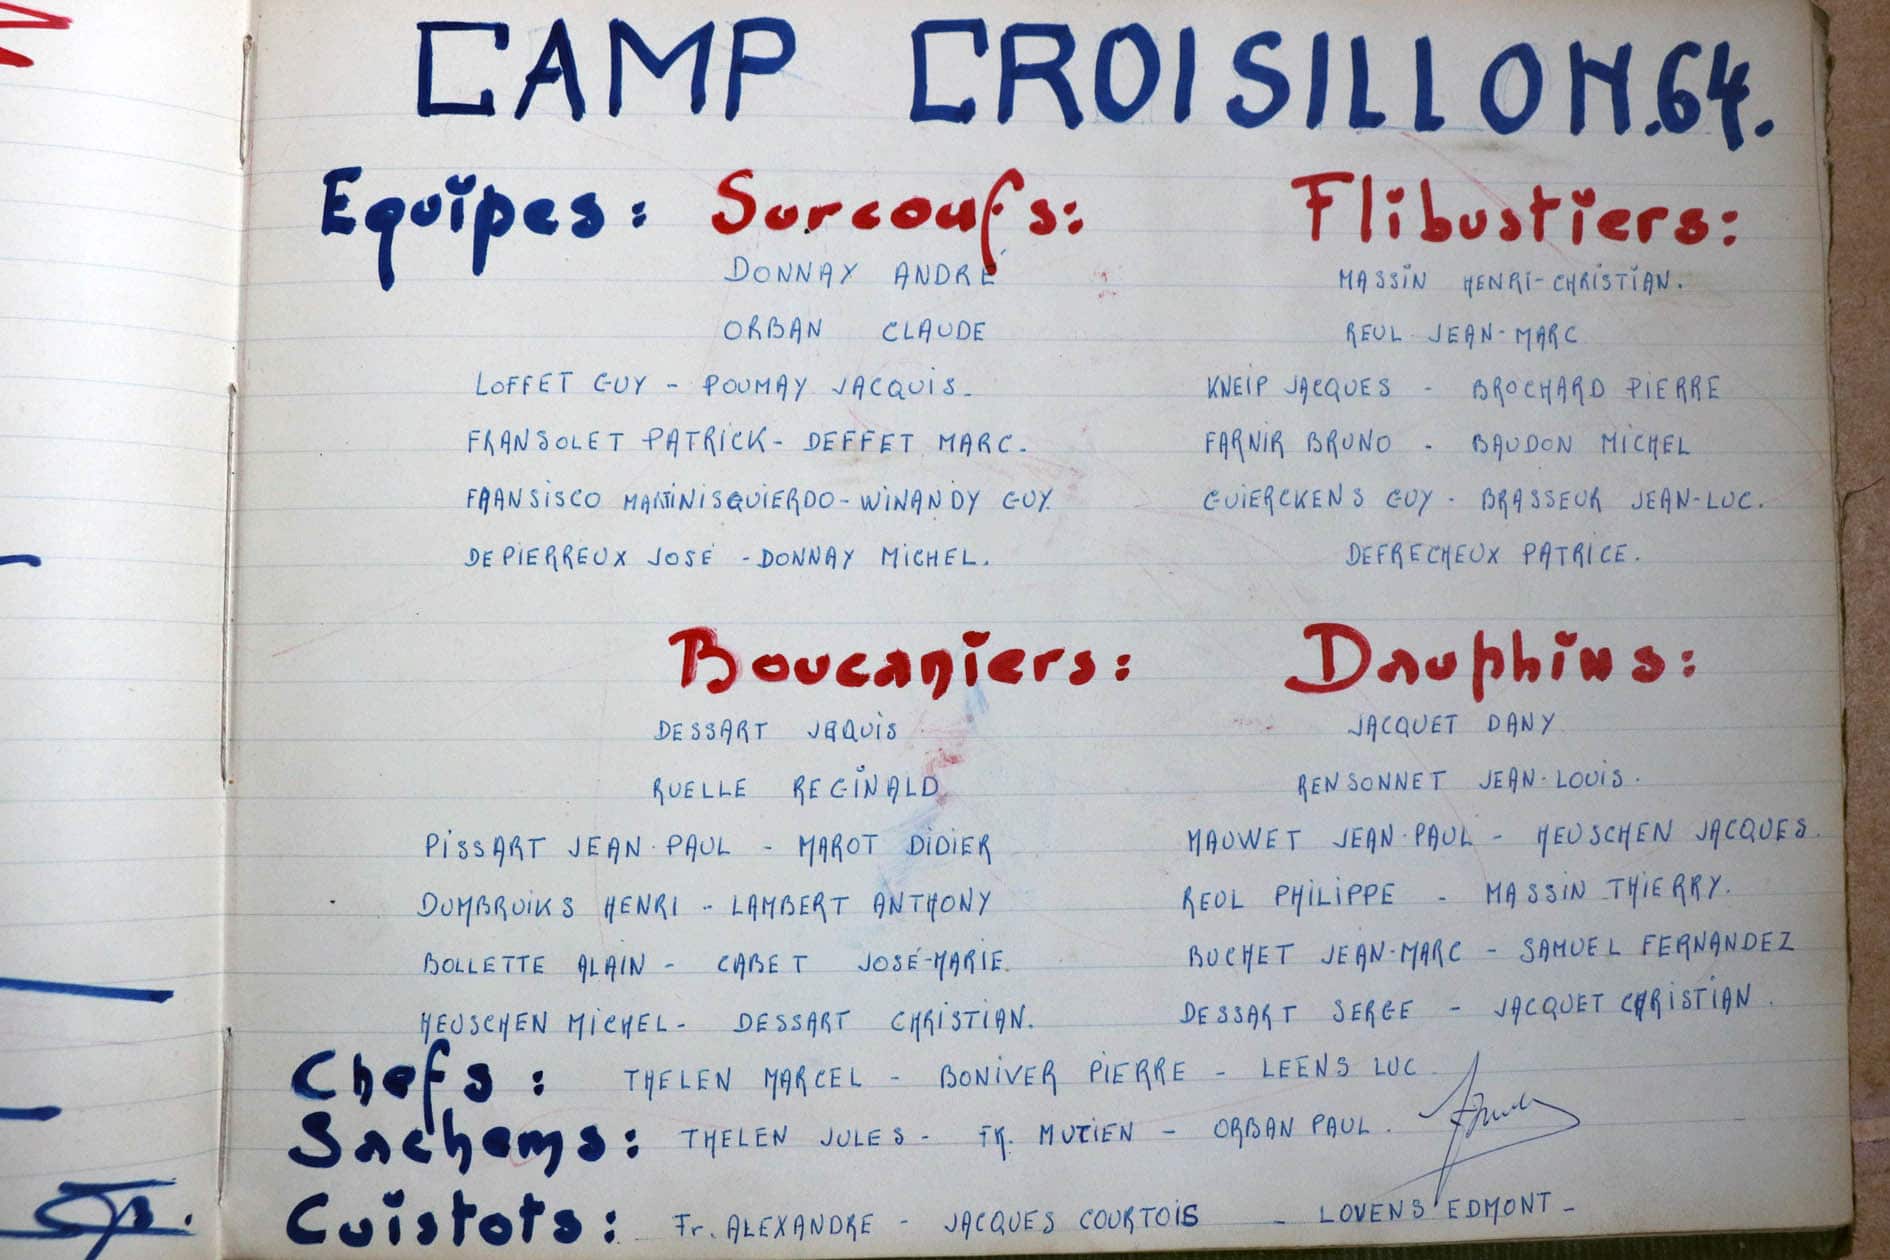 CAMP CROISILLON.64.
Equipes: Surcoufs: Flibustiers:
DONNAY ANDRÉ
ORBAN CLAUDE
LOFFET GUY - POUMAY JACQUIS.
FRANSOLET PATRICK - DEFFET MARC.
FRANSISCO MARTINISQUIERDO - WINANDY GUY.
DEPIERREUX JOSÉ - DONNAY MICHEL.
MASSIN HENRI-CHRISTIAN.
REUL JEAN-MARC
KNEIP JACQUES - BROCHARD PIERRE
FARNIR BRUNO - BAUDON MICHEL
GUIERCKENS GUY - BRASSEUR JEAN-LUC.
DEFRECHEUX PATRICE.
Boucaniers: Dauphins:
DESSART JAQUIS
RUELLE REGINALD
PISSART JEAN-PAUL - MAROT DIDIER
DUMBRUIKS HENRI - LAMBERT ANTHONY
BOLLETTE ALAIN - CABET JOSÉ-MARIE.
HEUSCHEN MICHEL - DESSART CHRISTIAN.
JACQUET DANY
RENSONNET JEAN-LOUIS.
MAUWET JEAN-PAUL - HEUSCHEN JACQUES.
REOL PHILIPPE - MASSIN THIERRY.
BUCHET JEAN-MARC - SAMUEL FERNANDEZ
DESSART SERGE - JACQUET CHRISTIAN.
Chefs: THELEN MARCEL - BONIVER PIERRE - LEENS LUC.
Sachems: THELEN JULES - FR. MUTIEN - ORBAN PAUL.
Cuistots: Fr. ALEXANDRE - JACQUES COURTOIS - LOVENS EDMONT -